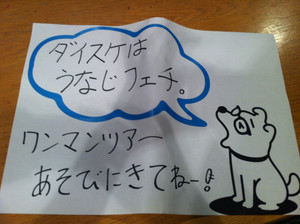 ダイスケは
うなじフェチ。
ワンマンツアー
あそびにきてねー!